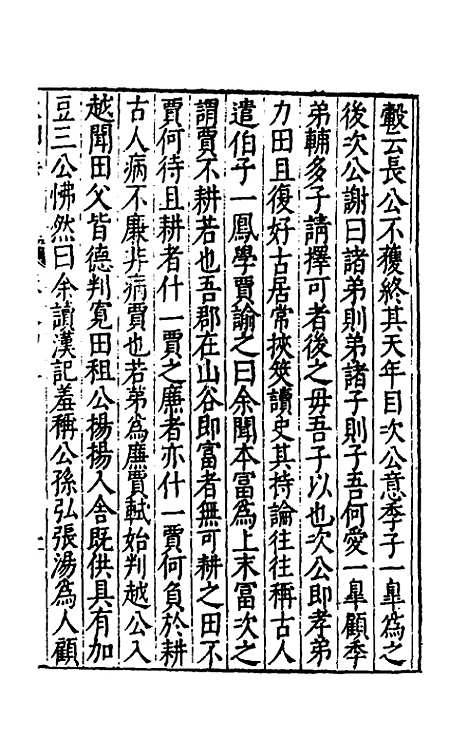 轂云長公不獲終其天年目次公意季子一臯為之
後次公謝曰諸弟則弟諸子則子吾何愛一臯顧季
弟輔多子請擇可者後之毋吾子以也次公即孝弟
力田且復好古居常挾筴讀史其持論往往稱古人
遣伯子一鳳學賈諭之曰余聞本富為上末富次之
謂賈不耕若也吾郡在山谷即富者無可耕之田不
賈何待且耕者什一賈之廉者亦什一賈何負於耕
古人病不廉非病賈也若弟為廉賈軾始判越公入
越聞田父皆德判寬田租公楊楊入舍既供具有加
豆三公怫然曰余讀漢記羞稱公孫弘張湯為人顧